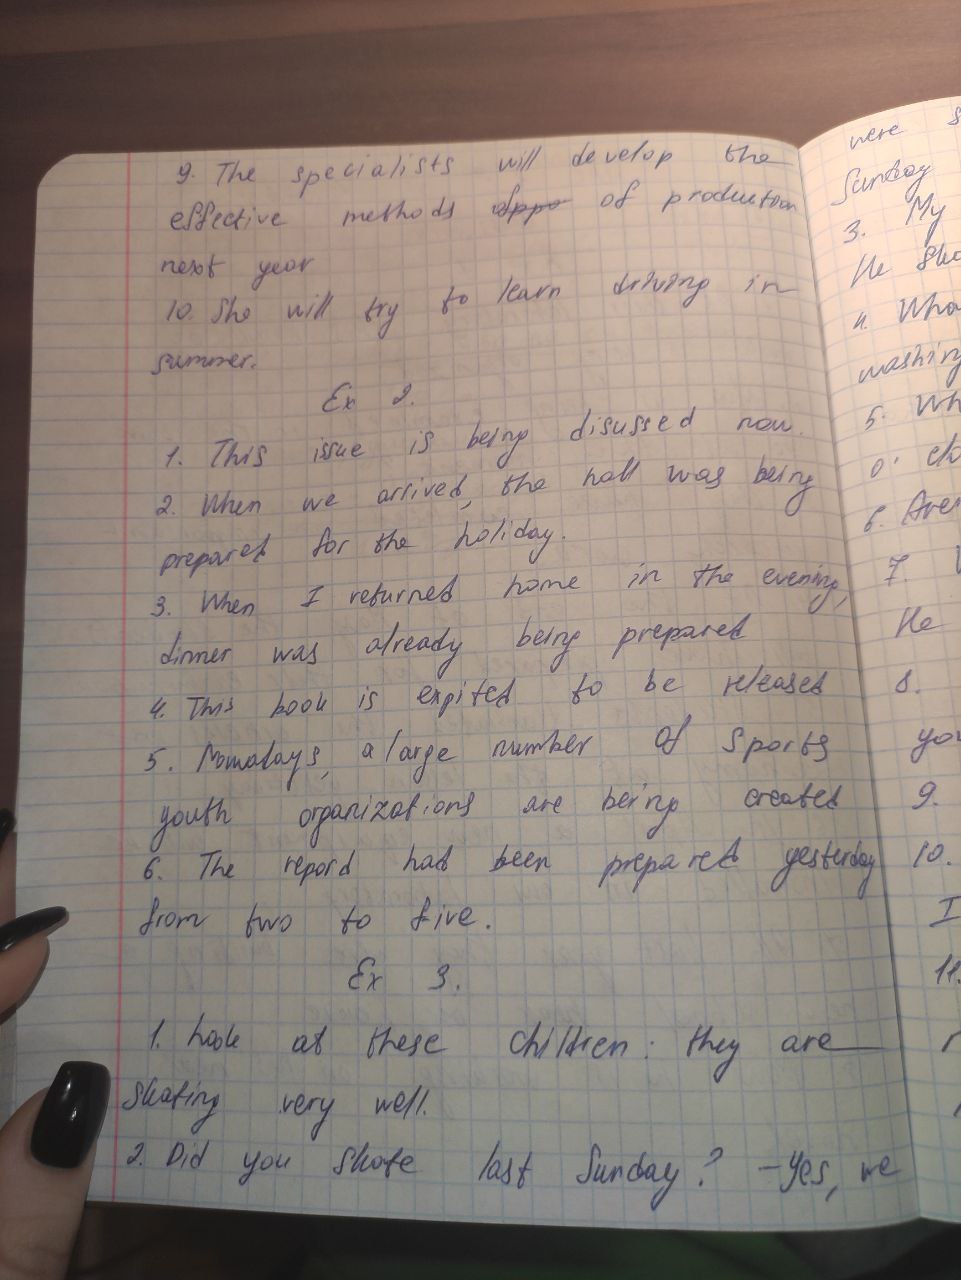 9. The specialists will develop the
effective methods of production
next year
10. She will try to learn driving in
summer.
Ex 2.
1. This issue is being disussed now.
2. When we arrived, the hall was being
prepared for the holiday.
3. When I returned home in the evening,
dinner was already being prepared
4. This book is expited to be released
5. Nowadays, a large number of sports
youth organizations are being created
6. The repord had been prepared yesterday
from two to five.
Ex 3.
1. Look at these children: they are
skating very well.
2. Did you skate last Sunday? - Yes, we
were s
Sunday
3. My
He ska
4. Wha
washing
5. Wh
o' clo
6. Are
7.
He
8.
you
9.
10.
I
11.